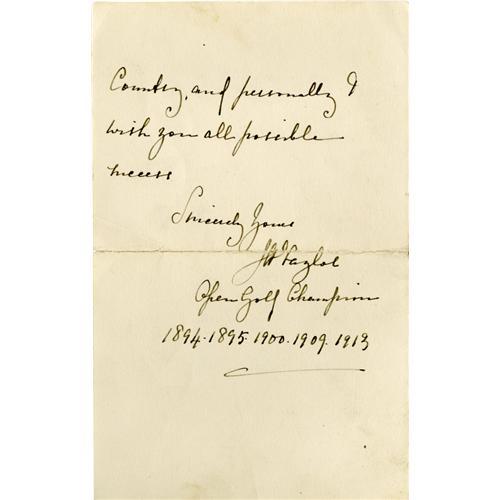 Country, and personally I
wish you all possible
success
Sincerely Yours
JH Taylor
Open Golf Champion
1894.1895.1900.1909.1913